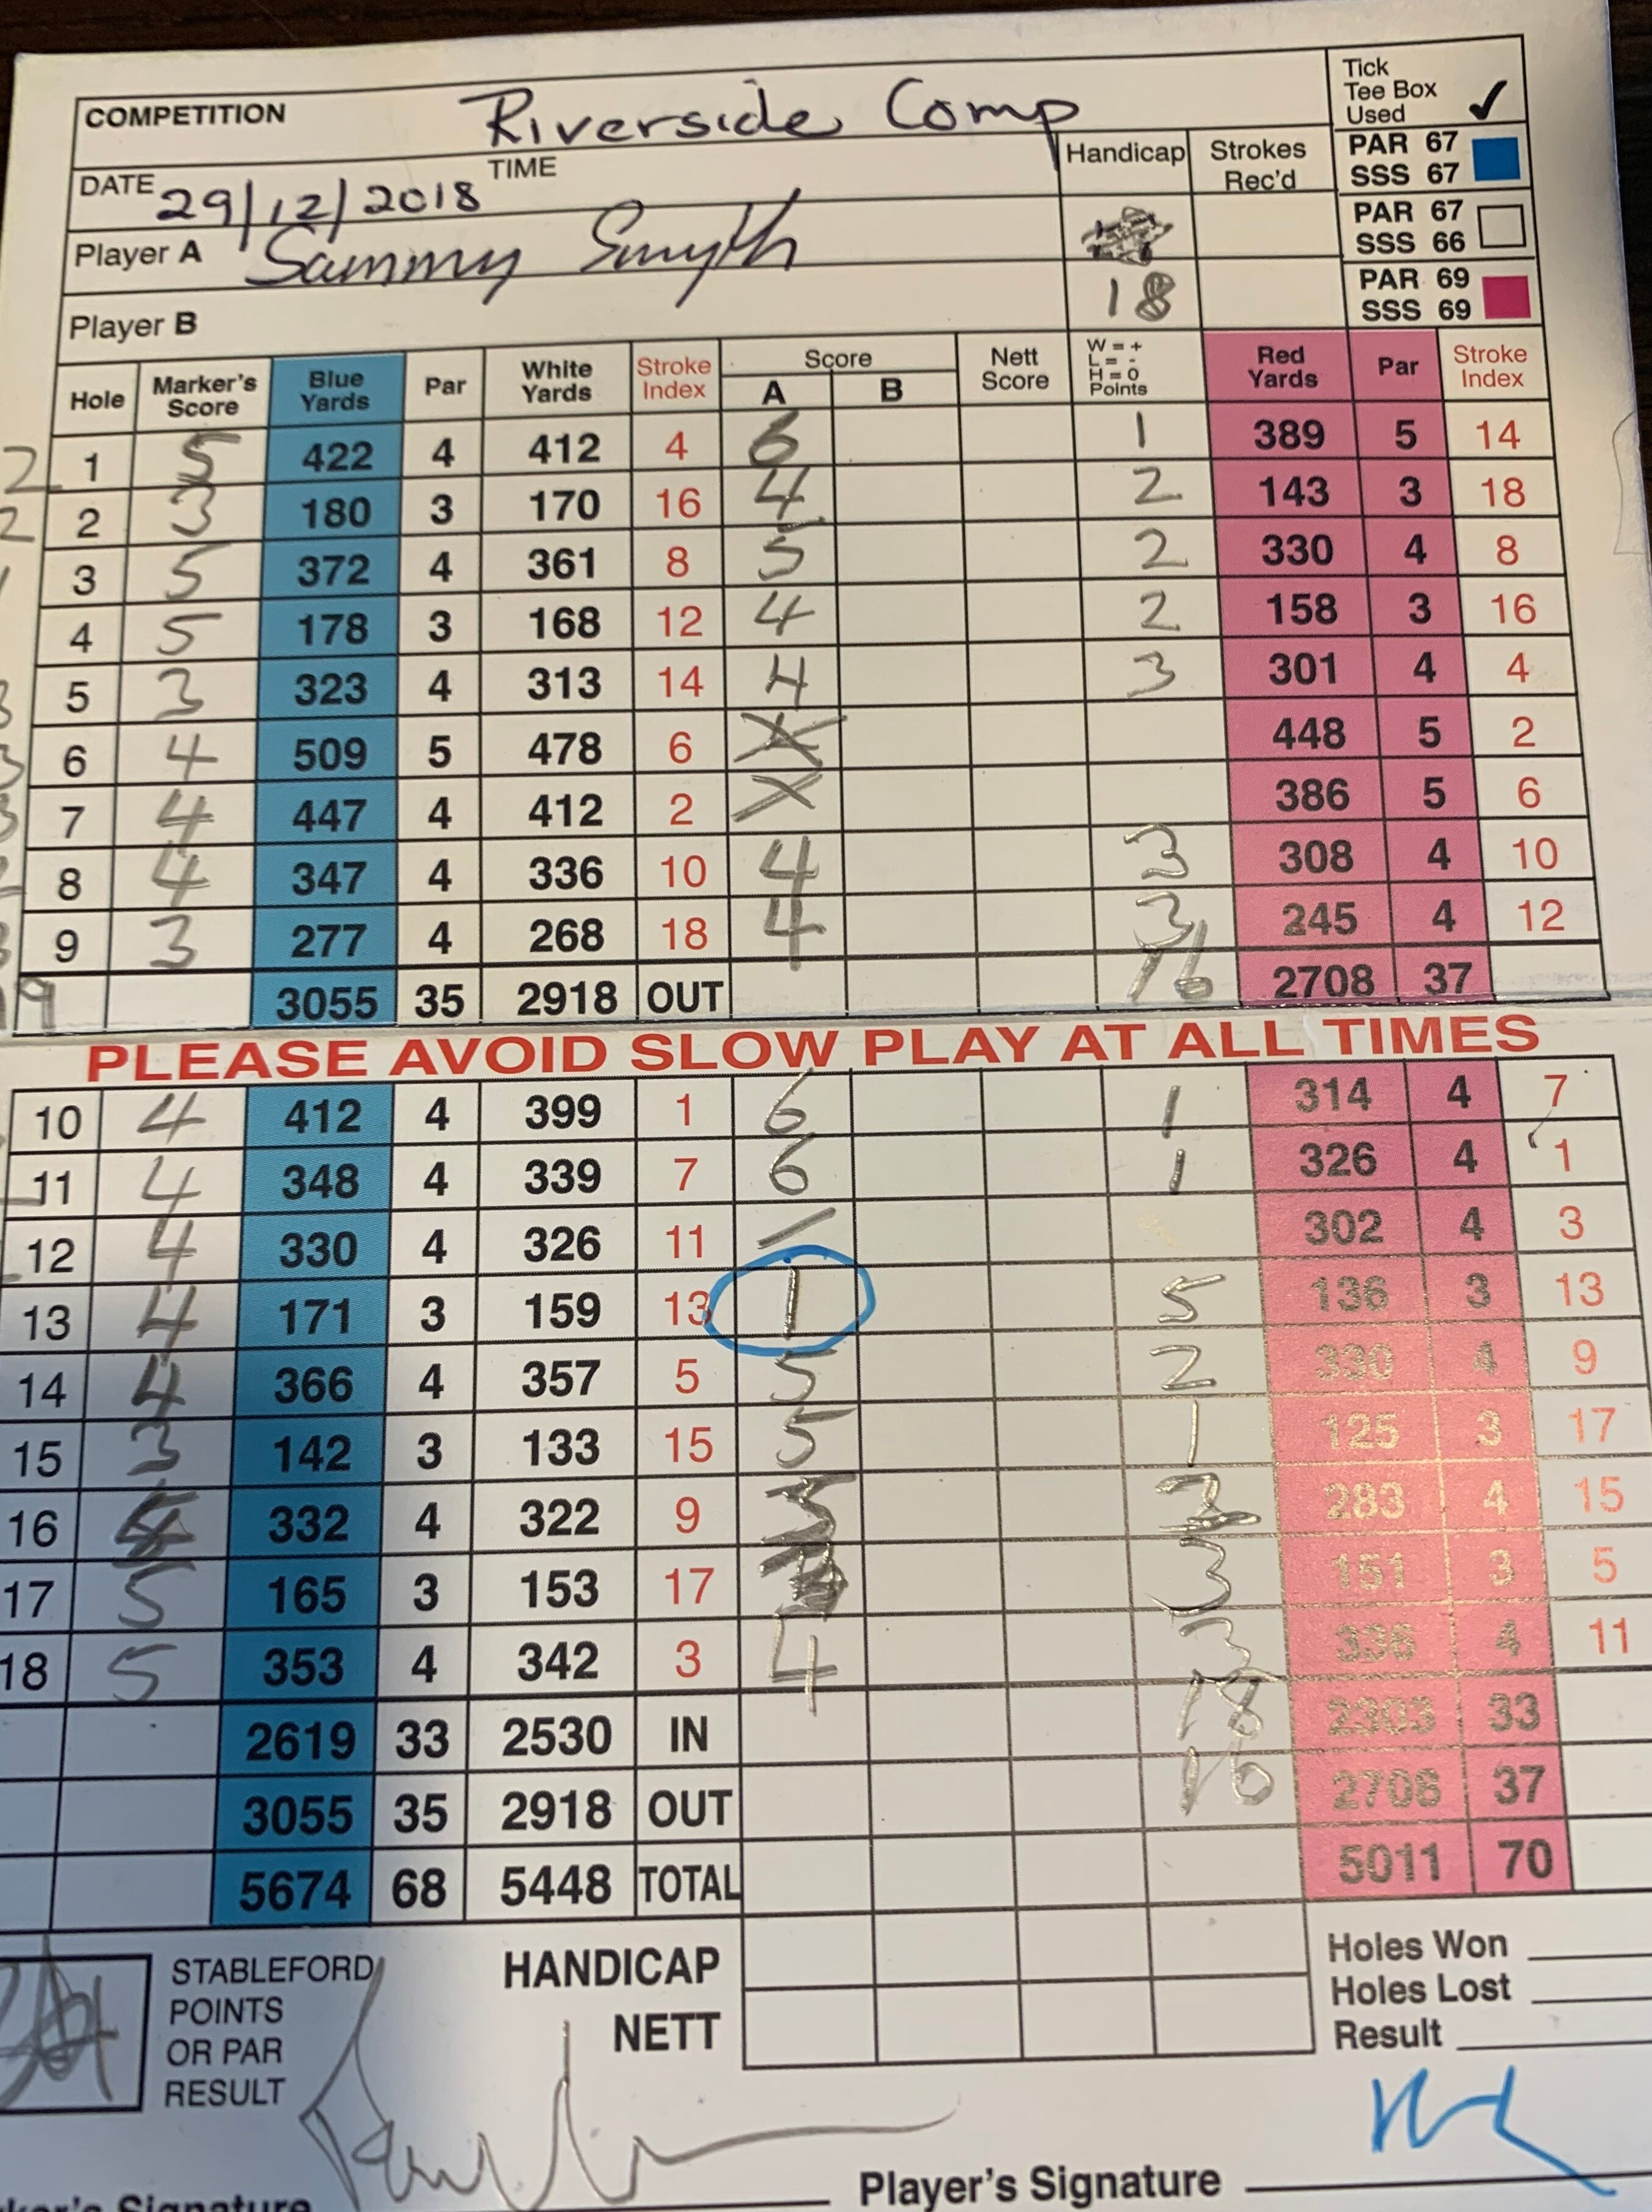 COMPETITION Riverside Comp
Tick Tee Box Used ✓
DATE 29/12/2018 TIME
Handicap Strokes Rec'd
PAR 67 SSS 67
Player A Sammy Smyth
PAR 67 SSS 66
Player B 18
PAR 69 SSS 69
Hole Marker's Score Blue Yards Par White Yards Stroke Index Score A B Nett Score W = + L = - H = 0 Points Red Yards Par Stroke Index
2 1 5 422 4 412 4 6 1 389 5 14
2 2 3 180 3 170 16 4 2 143 3 18
3 5 372 4 361 8 5 2 330 4 8
4 5 178 3 168 12 4 2 158 3 16
3 5 3 323 4 313 14 4 3 301 4 4
3 6 4 509 5 478 6 X 448 5 2
3 7 4 447 4 412 2 X 386 5 6
8 4 347 4 336 10 4 3 308 4 10
3 9 3 277 4 268 18 4 3 245 4 12
19 3055 35 2918 OUT 16 2708 37
PLEASE AVOID SLOW PLAY AT ALL TIMES
10 4 412 4 399 1 6 1 314 4 7
11 4 348 4 339 7 6 1 326 4 1
12 4 330 4 326 11 / 302 4 3
13 4 171 3 159 13 1 5 136 3 13
14 4 366 4 357 5 5 2 330 4 9
15 3 142 3 133 15 5 1 125 3 17
16 332 4 322 9 283 4 15
17 5 165 3 153 17 3 151 3 5
18 5 353 4 342 3 4 3 336 4 11
2619 33 2530 IN 18 2303 33
3055 35 2918 OUT 16 2708 37
5674 68 5448 TOTAL 5011 70
STABLEFORD POINTS OR PAR RESULT
HANDICAP
NETT
Holes Won
Holes Lost
Result
Signature
Player's Signature